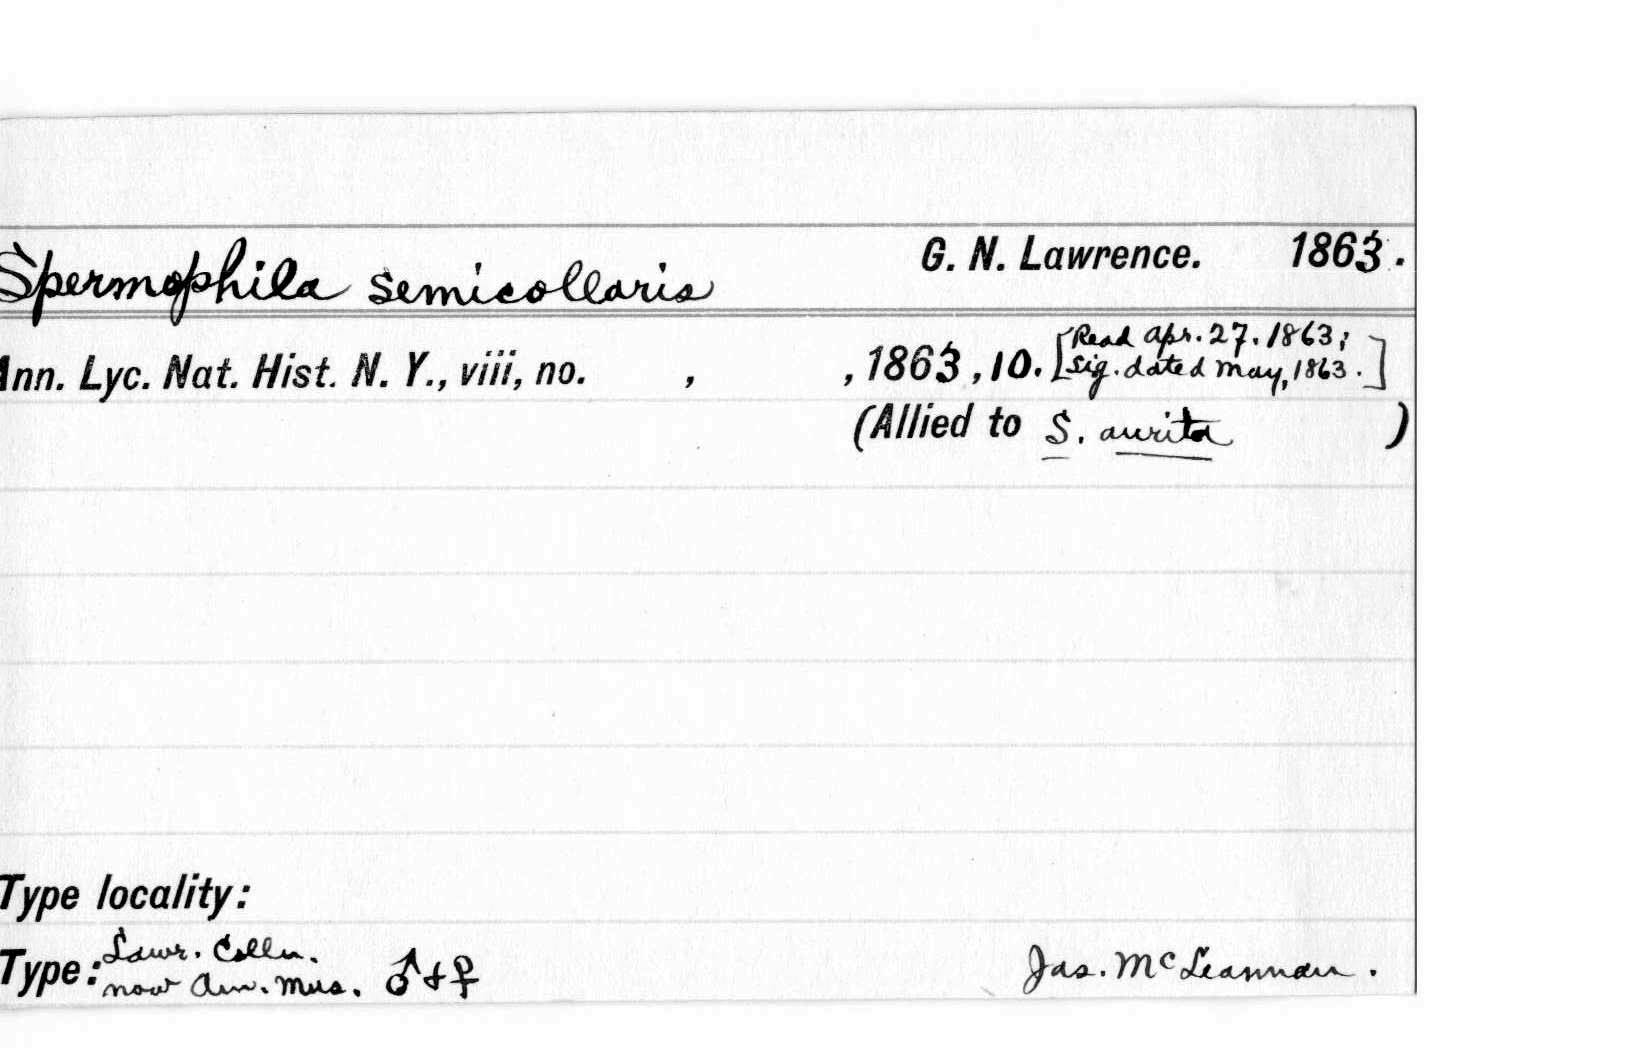 Spermophila semicollaris G. N. Lawrence. 1863.
Ann. Lyc. Nat. Hist. N. Y., viii, no. , , 1863, 10. [Read Apr. 27. 1863;
Sig. dated May, 1863.]
(Allied to S. aurita )
Type locality:
Type: Lawr. Colln.
now Am. Mus. ♂+♀ Jas. McLeannan.